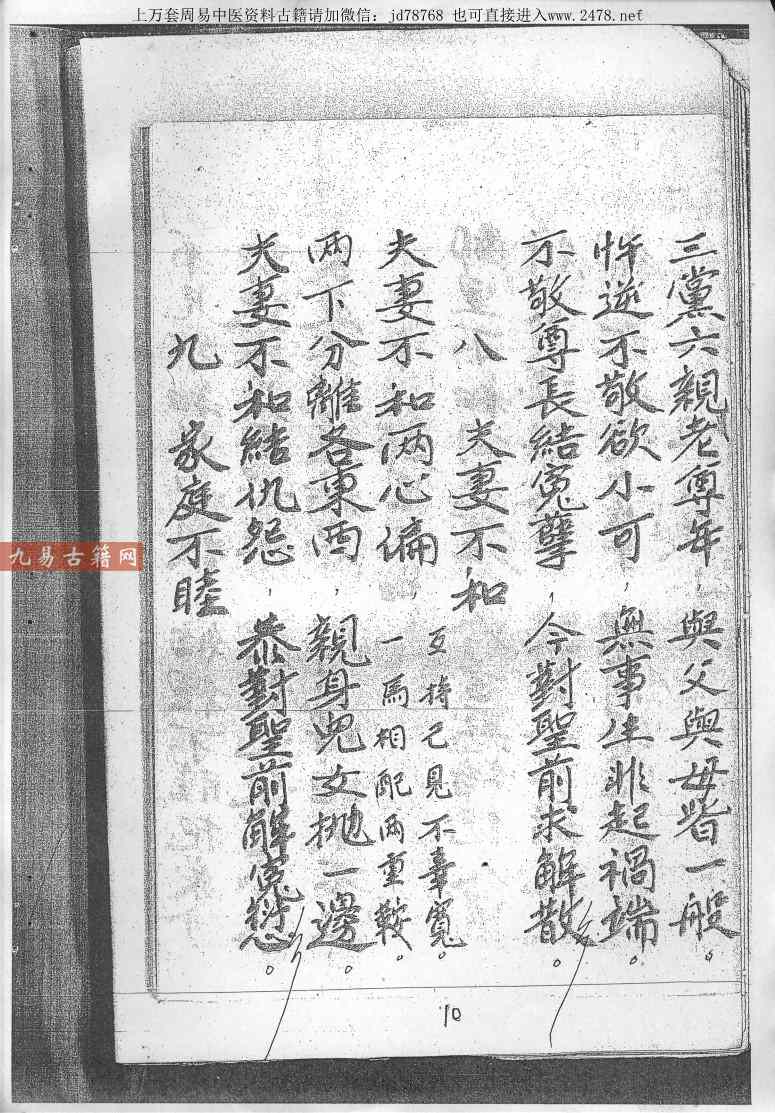 上万套周易中医资料古籍请加微信：jd78768 也可直接进入www.2478.net
三黨六親老尊年，與父與母皆一般。
忤逆不敬欲小可，無事生非起禍端。
不敬尊長結冤孽，今對聖前求解散。
八 夫妻不和
夫妻不和两心偏，
互持己見不辜寬。
一馬相配两重鞍。
两下分離各東西，親身兒女拋一邊。
夫妻不和結仇怨，恭對聖前解冤愆。
九 家庭不睦
九易古籍网
10